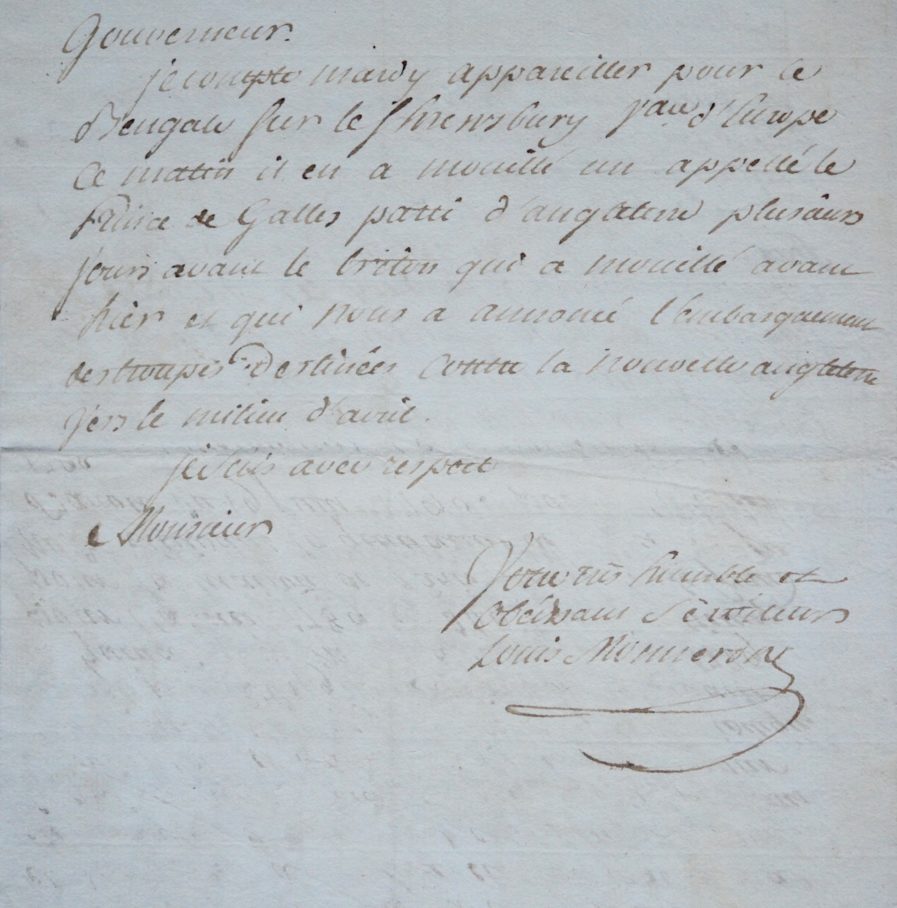 Gouverneur.
je compte mardy appareiller pour le
Bengale sur le Shrewsbury Vau. d'Europe
Ce matin il en a mouillé un appellé le
Prince de Galles parti d'angleterre plusieurs
jours avant le briton qui a mouillé avant
hier et qui nous a annoncé l'embarquement
des troupes destinées contre la nouvelle angleterre
vers le milieu d'avril.
je suis avec respect
Monsieur
Votre très humble et
Obéissant Serviteur
Louis Monneron